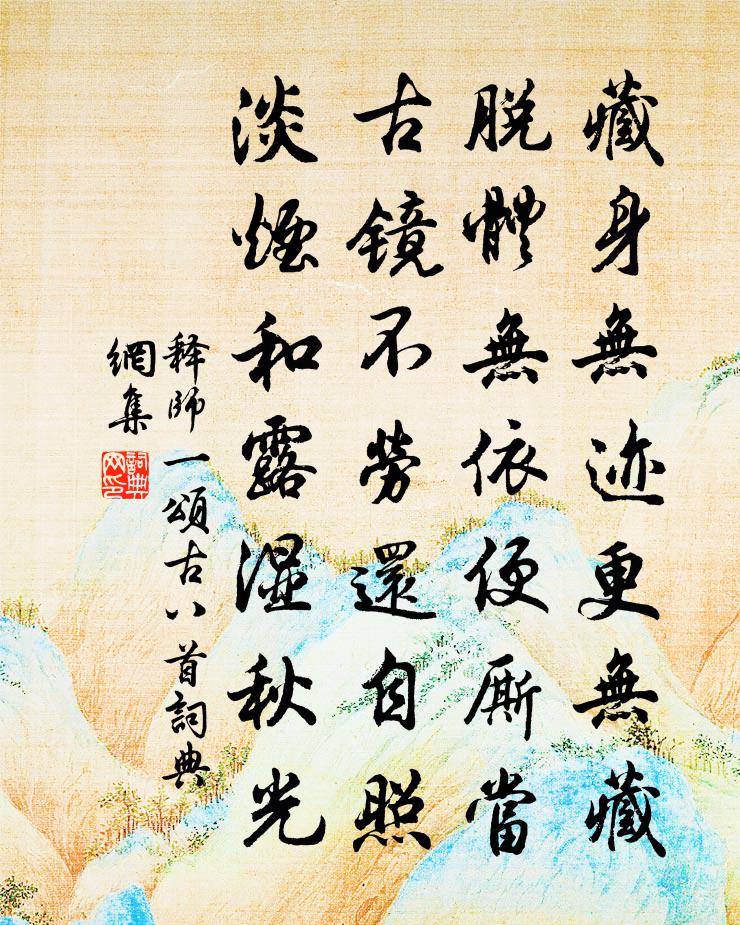 藏身無迹更無藏
脫體無依便厮當
古镜不勞還自照
淡煙和露濕秋光
释師一頌古八首詞典
網集
詞典
网印